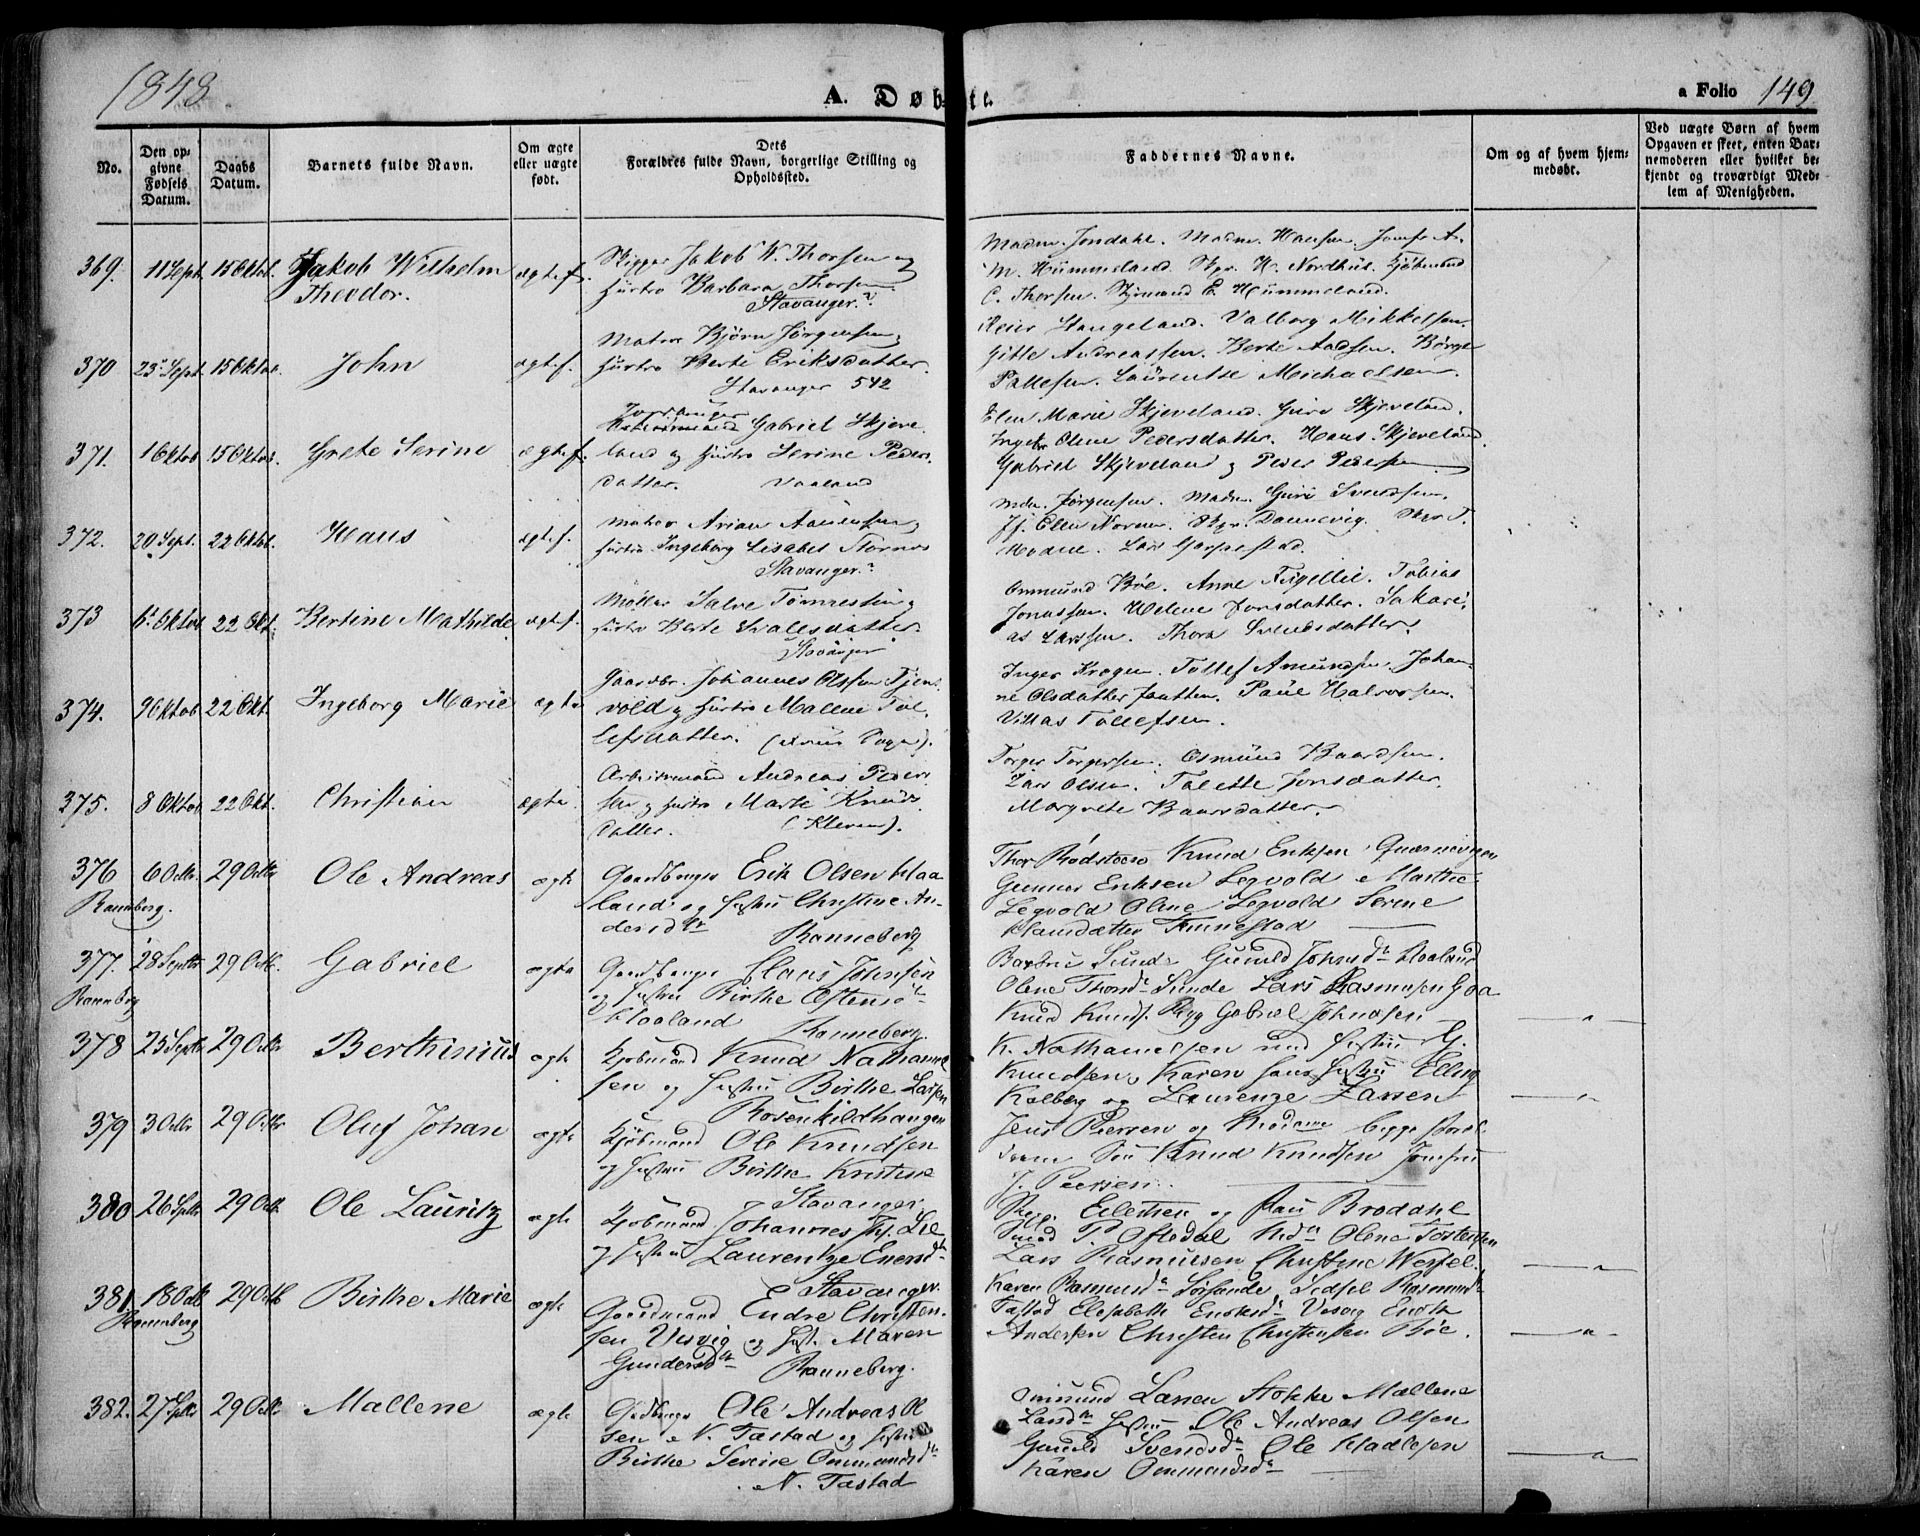 1848
A. Døbte.
a Folio 149
No.
Den opgivne Fødsels Datum.
Daabs Datum.
Barnets fulde Navn.
Om ægte eller uægte født.
Dets Forældres fulde Navn, borgerlige Stilling og Opholdssted.
Faddernes Navne.
Om og af hvem hjemmedøbt.
Ved uægte Børn af hvem Opgaven er skeet, enten Barnemoderen eller hvilket bekjendt og troværdigt Medlem af Menigheden.
369. 11 Sept. 15 Oktob. Jakob Wilhelm Theodor. ægtef.
Skipper Jakob W. Thorsen og
Hustro Barbara Thorsen.
Stavanger.
Madm. Jondahl. Madm. Hansen. Jomfr A.
M. Hummeland. Skpr. H. Nordhus. Kjøbmand
C. Thorsen. Styrmand E. Hummeland.
370 23 Sept. 15 Oktob. John ægtef.
Matros Bjørn Jørgensen og
Hustro Berte Eriksdatter.
Stavanger 542
Reier Stangeland. Valborg Mikkelsen.
Gitte Andreassen. Berte Aadsen. Børge
Pallesen. Laurentse Michaelsen.
371. 1 Oktob 15 Oktob. Grete Serine ægtef.
Gabriel Skjeve
land og Hustro Serine Peders
datter. Vaaland
Elen Marie Skjeveland. Guro Skjeveland.
Ingebr Olene Pedersdatter. Hans Skjeveland.
Gabriel Skjeveland og Peder Pedersen
372. 20 Sept. 22 Oktob. Hans ægtef.
Matros Arian Aanensen og
Hustro Ingeborg Lisabet Stornes
Stavanger.
Mdm. Jørgensen. Madm. Guri Svendsen.
Jf. Elen Norman. Skpr. Dannevig. Skpr T.
Modne. Lars Gorpestad.
373 6 Oktob 22 Okt. Bertine Mathilde. ægtef.
Møller Salve Tønnesen og
Hustro Berte Svalesdatter.
Stavanger
Ommund Bøe. Anne Tobias
Jonassen. Helene Jonsdatter. Sakari
as Larssen. Thora Svendsdatter.
374. 9 Oktob 22 Okt. Ingeborg Marie ægte
Gaardbr. Johannes Olssen Tjens
vold og Hustro Mallene Tol
lefsdatter.
Inger Kroge. Tollef Amundsen. Johan
ne Olsdatter Jaatten. Paul Halvorsen
Villas Tollefsen.
375. 8 Oktob 22 Okt. Christian ægte
Arbeidsmand Andreas Peder
sen og Hustro Marte Knuds
datter. (Kleven).
Torger Torgersen. Osmund Baardsen.
Lars Olsen. Tolette Jonsdatter.
Margrete Baarsdatter.
376 6 Octbr. 29 Octbr Ole Andreas ægte
Ranneberg.
Gaardbruger Erik Olsen Haa
land og Hustru Christine An-
dersdtr Ranneberg
Thor Rødstoen Knud Eriksen Quernevigen
Gunner Eriksen Legvold Marthe
Legvold Olene Legvold Serine
Hansdatter Tennestad
377. 28 Septbr 29 Octb. Gabriel ægte
Ranneberg
Gaardbruger Claus Johnsen
og Hustru Birthe Østensdtr
Haaland Ranneberg.
Barbru Sunde Gunild Johnsdtr Haaland
Olene Thorsdtr Sunde Lars Rasmusen Goa
Knud Knuds. Rygg Gabriel Johnsen
378 25 Septbr 29 Octbr Berthinius ægte
Kjøbmand Knud Nathaniel
sen og Hustru Birthe Larsen
Rosenkildhaugen
K. Nathanielsen med Hustru G.
Knudsen. Karen hans Hustru Elling
Kolberg og Laurenze Larsen
379 3 Octbr 29 Octbr Oluf Johan ægte
Kjøbmand Ole Knudsen
og Hustru Birthe Kristine
Stavanger
Jens Piersen og Madame begge
Knud Knudsen Jomfru
J. Peersen.
380 26 Sptbr 29 Octb. Ole Lauritz ægte
Kjøbmand Johannes Lie
og Hustru Laurentze Enersdtr
Stavanger
Eilertsen og Frau Brodahl
P. Oftedal Olene Tostensen
Lars Rasmussen Christine Wessel.
381. 18 Octb 29 Octb Birthe Marie ægte
Ranneberg
Gaardmand Endre Christen-
sen Visvig og Hust. Maren
Gundersdtr Ranneberg.
Karen Rasmusdtr Sørsunde, Sidsel Rasmusdtr
Tastad Elisabeth Visvig Endre
Andersen Christen Christensen Bøe.
382. 27 Sptbr 29 Octb. Mallene ægte
Grdbruger Ole Andreas Ol
sen N. Tastad og Hustru
Birthe Serine Ommundsdtr
N. Tastad
Ommund Larsen Stokke Mallene
Ole Andreas Olsen
Gunild Svendsdtr Ole Hadlesen
Karen Ommundsdtr